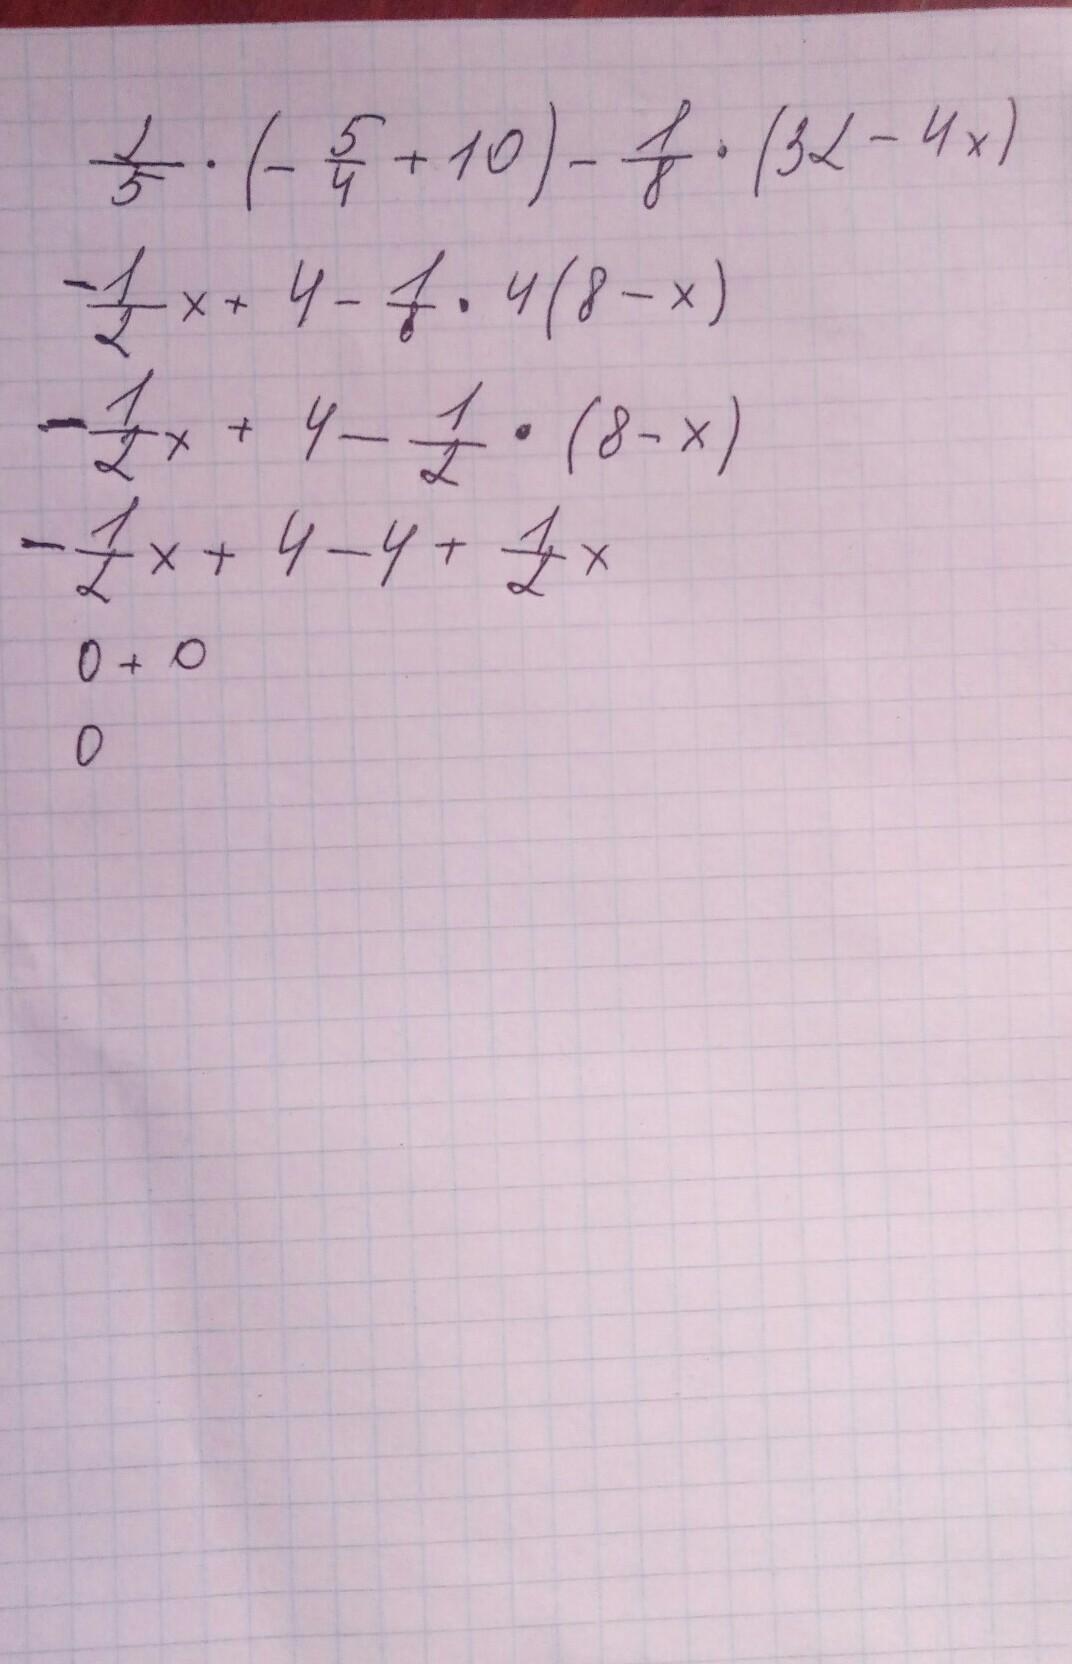 2/5 · (- 5/4 + 10) - 1/8 · (32 - 4x)
-1/2 x + 4 - 1/8 · 4(8 - x)
-1/2 x + 4 - 1/2 · (8 - x)
-1/2 x + 4 - 4 + 1/2 x
0 + 0
0